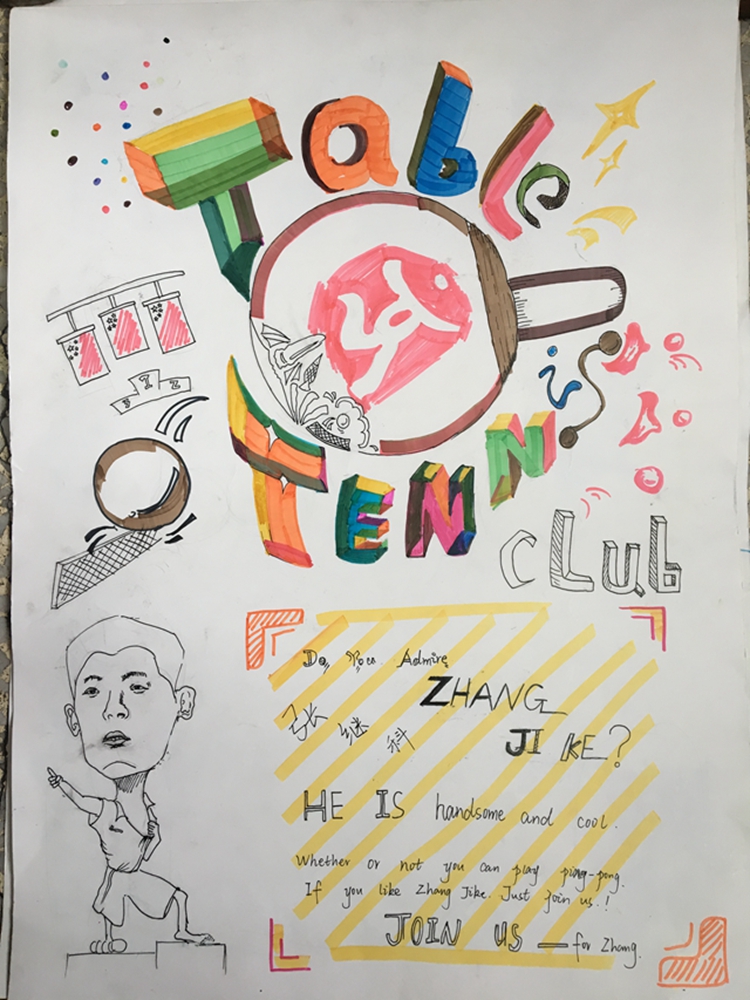 Table
TENNis
CLub
3 1 2
Do you Admire
ZHANG
张继科
JI KE?
HE IS handsome and cool.
Whether or not you can play ping-pong.
If you like Zhang Jike. Just join us.!
JOIN US — for Zhang.